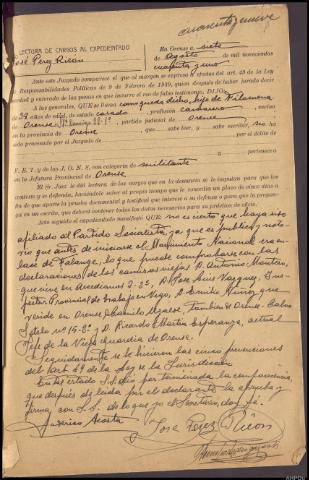 cuarenta y nueve
LECTURA DE CARGOS AL EXPEDIENTADO
José Perez Ricón
En Orense a siete
de Agosto de mil novecientos
cuarenta y uno
Ante este Juzgado comparece el que al margen se expresa a efectos del art. 49 de la Ley
de Responsabilidades Políticas de 9 de Febrero de 1939, quien después de haber jurado decir
verdad y enterado de las penas en que incurre el reo de falso testimonio, DIJO:
A las generales, QUE se llama como queda dicho, hijo de Filomena
de 34 años de edad, de estado casado, profesión
Orense, partido judicial de Orense
en la provincia de Orense que sabe leer y sabe escribir, no ha
sido procesado por el Juzgado de por el delito de
y perteneció
F. E. T. y de las J. O. N. S. con categoría de militante
en la Jefatura Provincial de Orense.
El Sr. Juez le dió lectura de los cargos que en la denuncia se le imputan para que los
conteste y se defienda, haciéndole saber el propio tiempo que le concede un plazo de cinco días a
fin de que aporte la prueba documental y testifical que interese a su defensa o para que la propon-
ga en un escrito, que deberá contener todos los datos necesarios para su práctica de oficio.
Ante seguido el expedientado manifestó QUE: no es cierto que haya sido
afiliado al Partido Socialista, ya que es público y noto-
rio que antes de iniciarse el Movimiento Nacional era en-
lace de Falange, lo que puede comprobarse con las
declaraciones de los camisas viejas D. Antonio Montero,
que vive en Arcedianos 2-2º, D. José Luis Vazquez, Ins-
pector Provincial de Trabajo en Vigo, D. Emilio
reside en Orense, tambien de Orense - Calvo
Sotelo nº 15-2º y D. Ricardo Martin Esperanza, actual
Jefe de la Vieja Guardia de Orense.
Seguidamente se le hicieron las cinco prevenciones
del art 49 de la Ley de la Jurisdicción.
En este estado S.S. dió por terminada la comparecencia,
que después de leida por el declarante la aprueba y
firma con S.S. de lo que yo el Secretario, doy fé.
Federico Acosta
Jose Perez Ricon
AHPOu